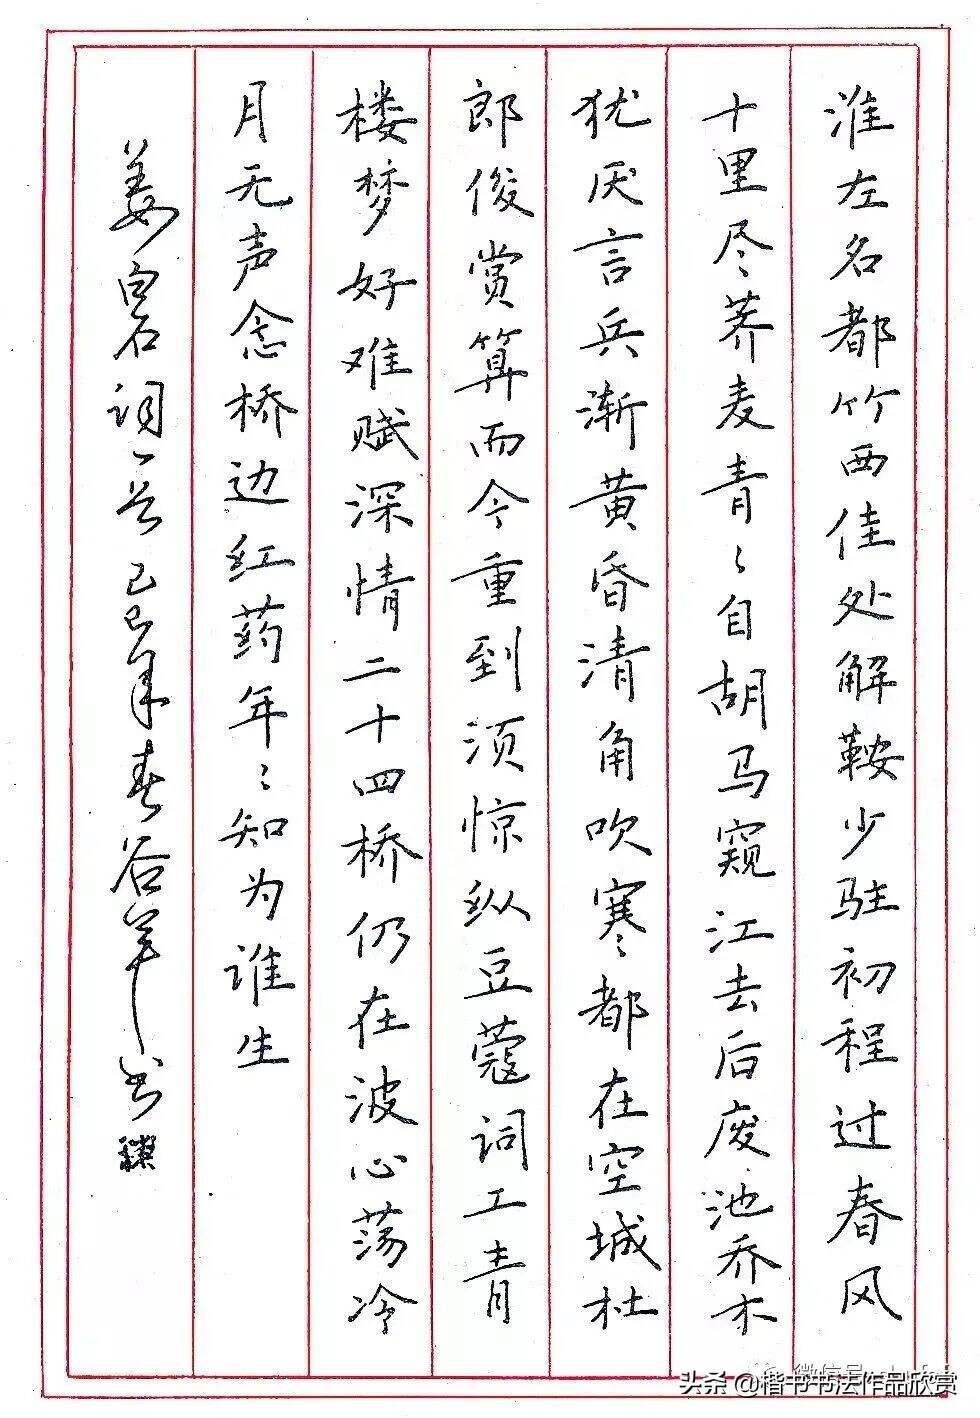 淮左名都竹西佳处解鞍少驻初程过春风
十里尽荠麦青〻自胡马窥江去后废池乔木
犹厌言兵渐黄昏清角吹寒都在空城杜
郎俊赏算而今重到须惊纵豆蔻词工青
楼梦好难赋深情二十四桥仍在波心荡冷
月无声念桥边红药年〻知为谁生
姜白石词一首己巳年春谷羊书
微信号
头条 @楷书书法作品欣赏